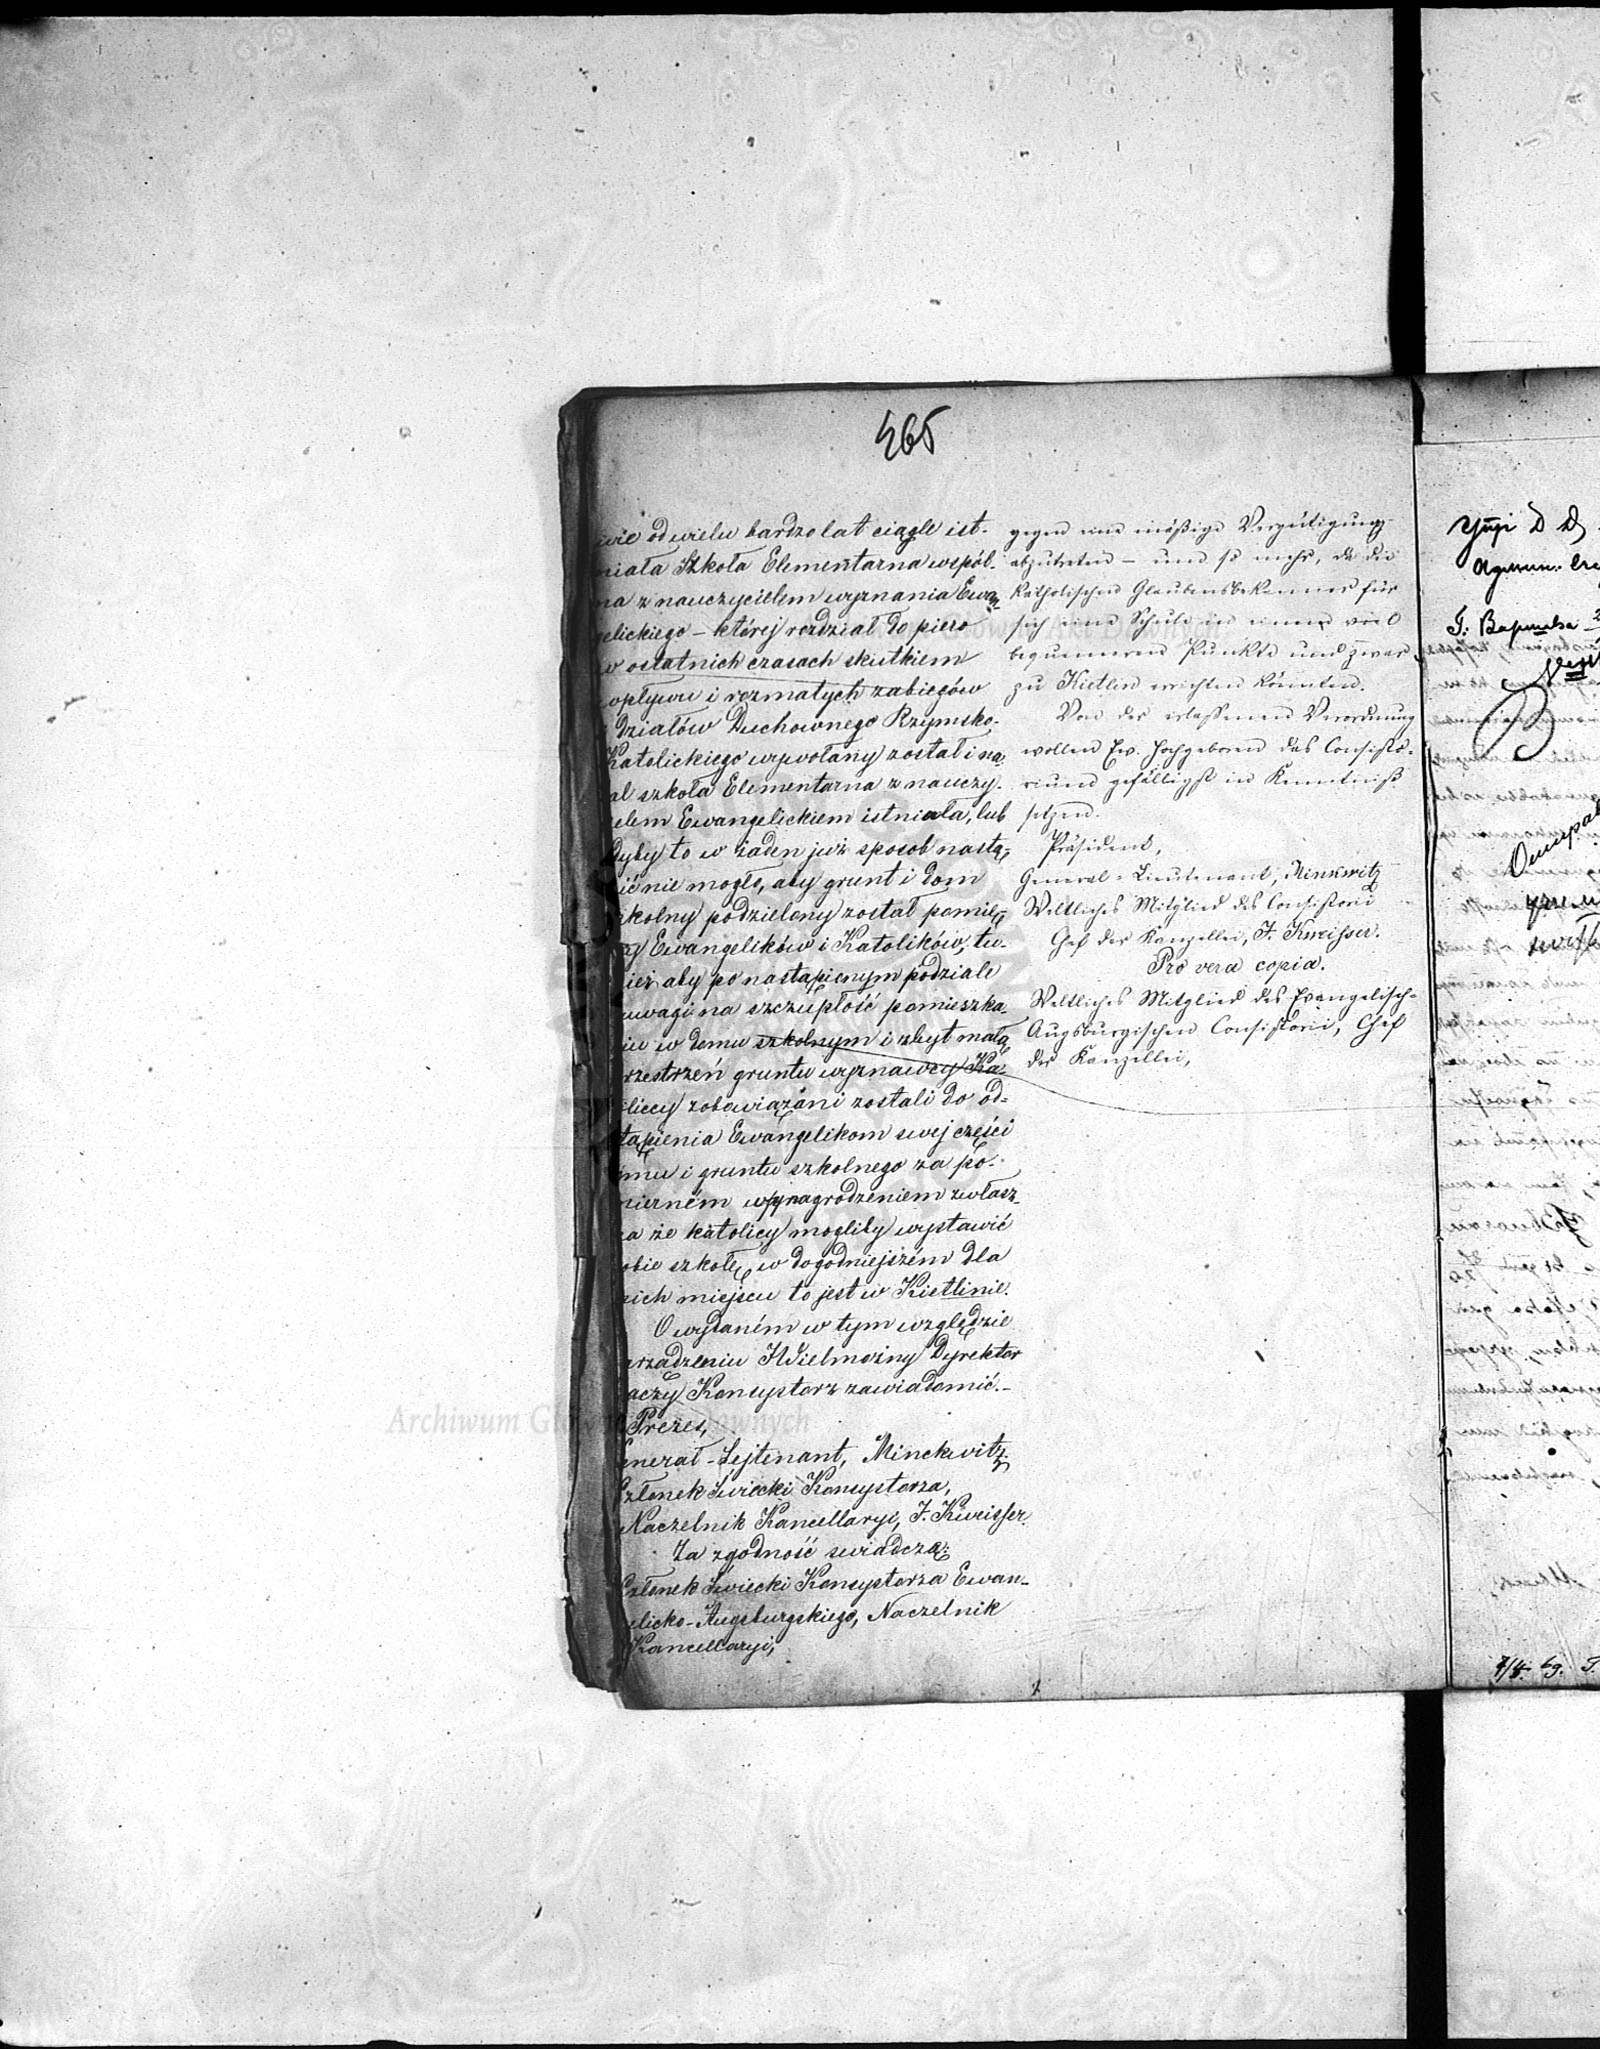 465
wie od wielu bardzo lat ciągle ist-
niała Szkoła Elementarna wspól-
na z nauczycielem wyznania Ewan-
gelickiego – której rozdział do piero
w ostatnich czasach skutkiem
wpływu i rozmaitych zabiegów
działów Duchownego Rzymsko-
Katolickiego wywołany został i na
al szkoła Elementarna z nauczy-
ielem Ewangelickiem istniała, lub
dyby to w żaden już sposób nastą-
ić nie mogło, aby grunt i dom
szkolny podzielony został pomię-
zy Ewangelików i Katolików, tu-
ież aby po nastąpionym podziale
uwagi na szczupłość pomieszka-
iu w domu szkolnym i zbyt małą
rzestrzeń gruntu wyznawcy Ka-
oliccy zobowiązani zostali do od-
tąpienia Ewangelikom swej części
omu i gruntu szkolnego za po-
miernem wynagrodzeniem zwłasz-
za że katolicy mogliby wystawić
obie szkołę w dogodniejszém dla
nich miejscu to jest w Kietlinie.
O wydaném w tym względzie
arządzeniu JWielmożny Dyrektor
aczy Konsystorz zawiadomić.-
Prezes,
enerał-Lejtenant, Minckwitz
Członek Świecki Konsystorza,
Naczelnik Kancellaryi, J. Kweisser.
Za zgodność świadczą:
Członek Świecki Konsystorza Ewan-
elicko-Augsburgskiego, Naczelnik
Kancellaryi,
gegen eine mäßige Vergütigung
abzutreten – und so mehr, da die
Katholischen Glaubensbekenner für
sich eine Schule in einem viel
bequemeren Punkte und zwar
zu Kietlin errichten könnten.
Von der erlassenen Verordnung
wollen Ew. Hochgeboren das Consisto-
rium gefälligst in Kenntniß
setzen.
Präsident,
General-Lieutenant, Minkwitz
Weltliches Mitglied des Consistorii
Chef der Kanzellei, J. Kweisser.
Pro vera copia.
Weltliches Mitglied des Evangelisch-
Augsburgischen Consistorii, Chef
der Kanzellei,
Archiwum Główne Akt Dawnych